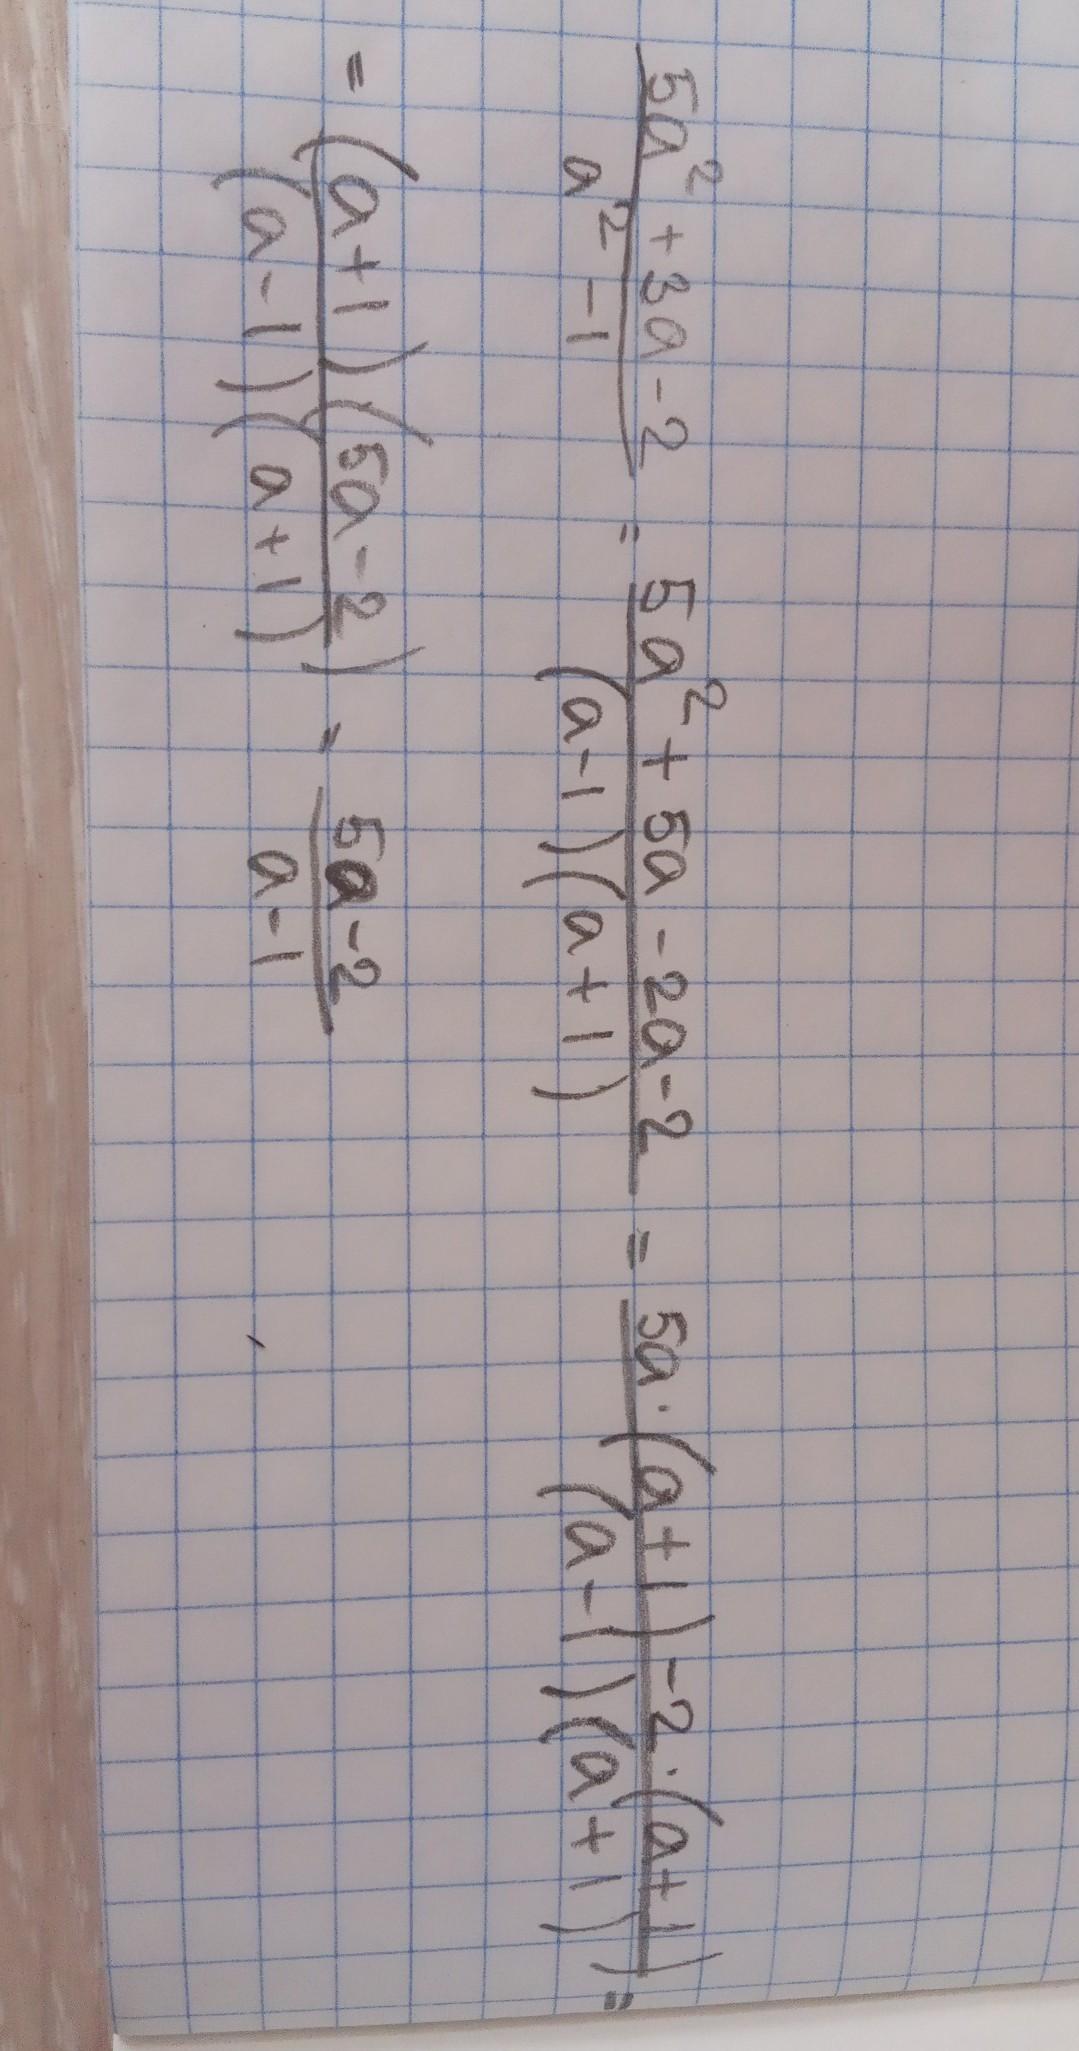 (5a² + 3a - 2)/(a² - 1) = (5a² + 5a - 2a - 2)/((a - 1)(a + 1)) = (5a · (a + 1) - 2 · (a + 1))/((a - 1)(a + 1)) =
= ((a + 1)(5a - 2))/((a - 1)(a + 1)) = (5a - 2)/(a - 1)